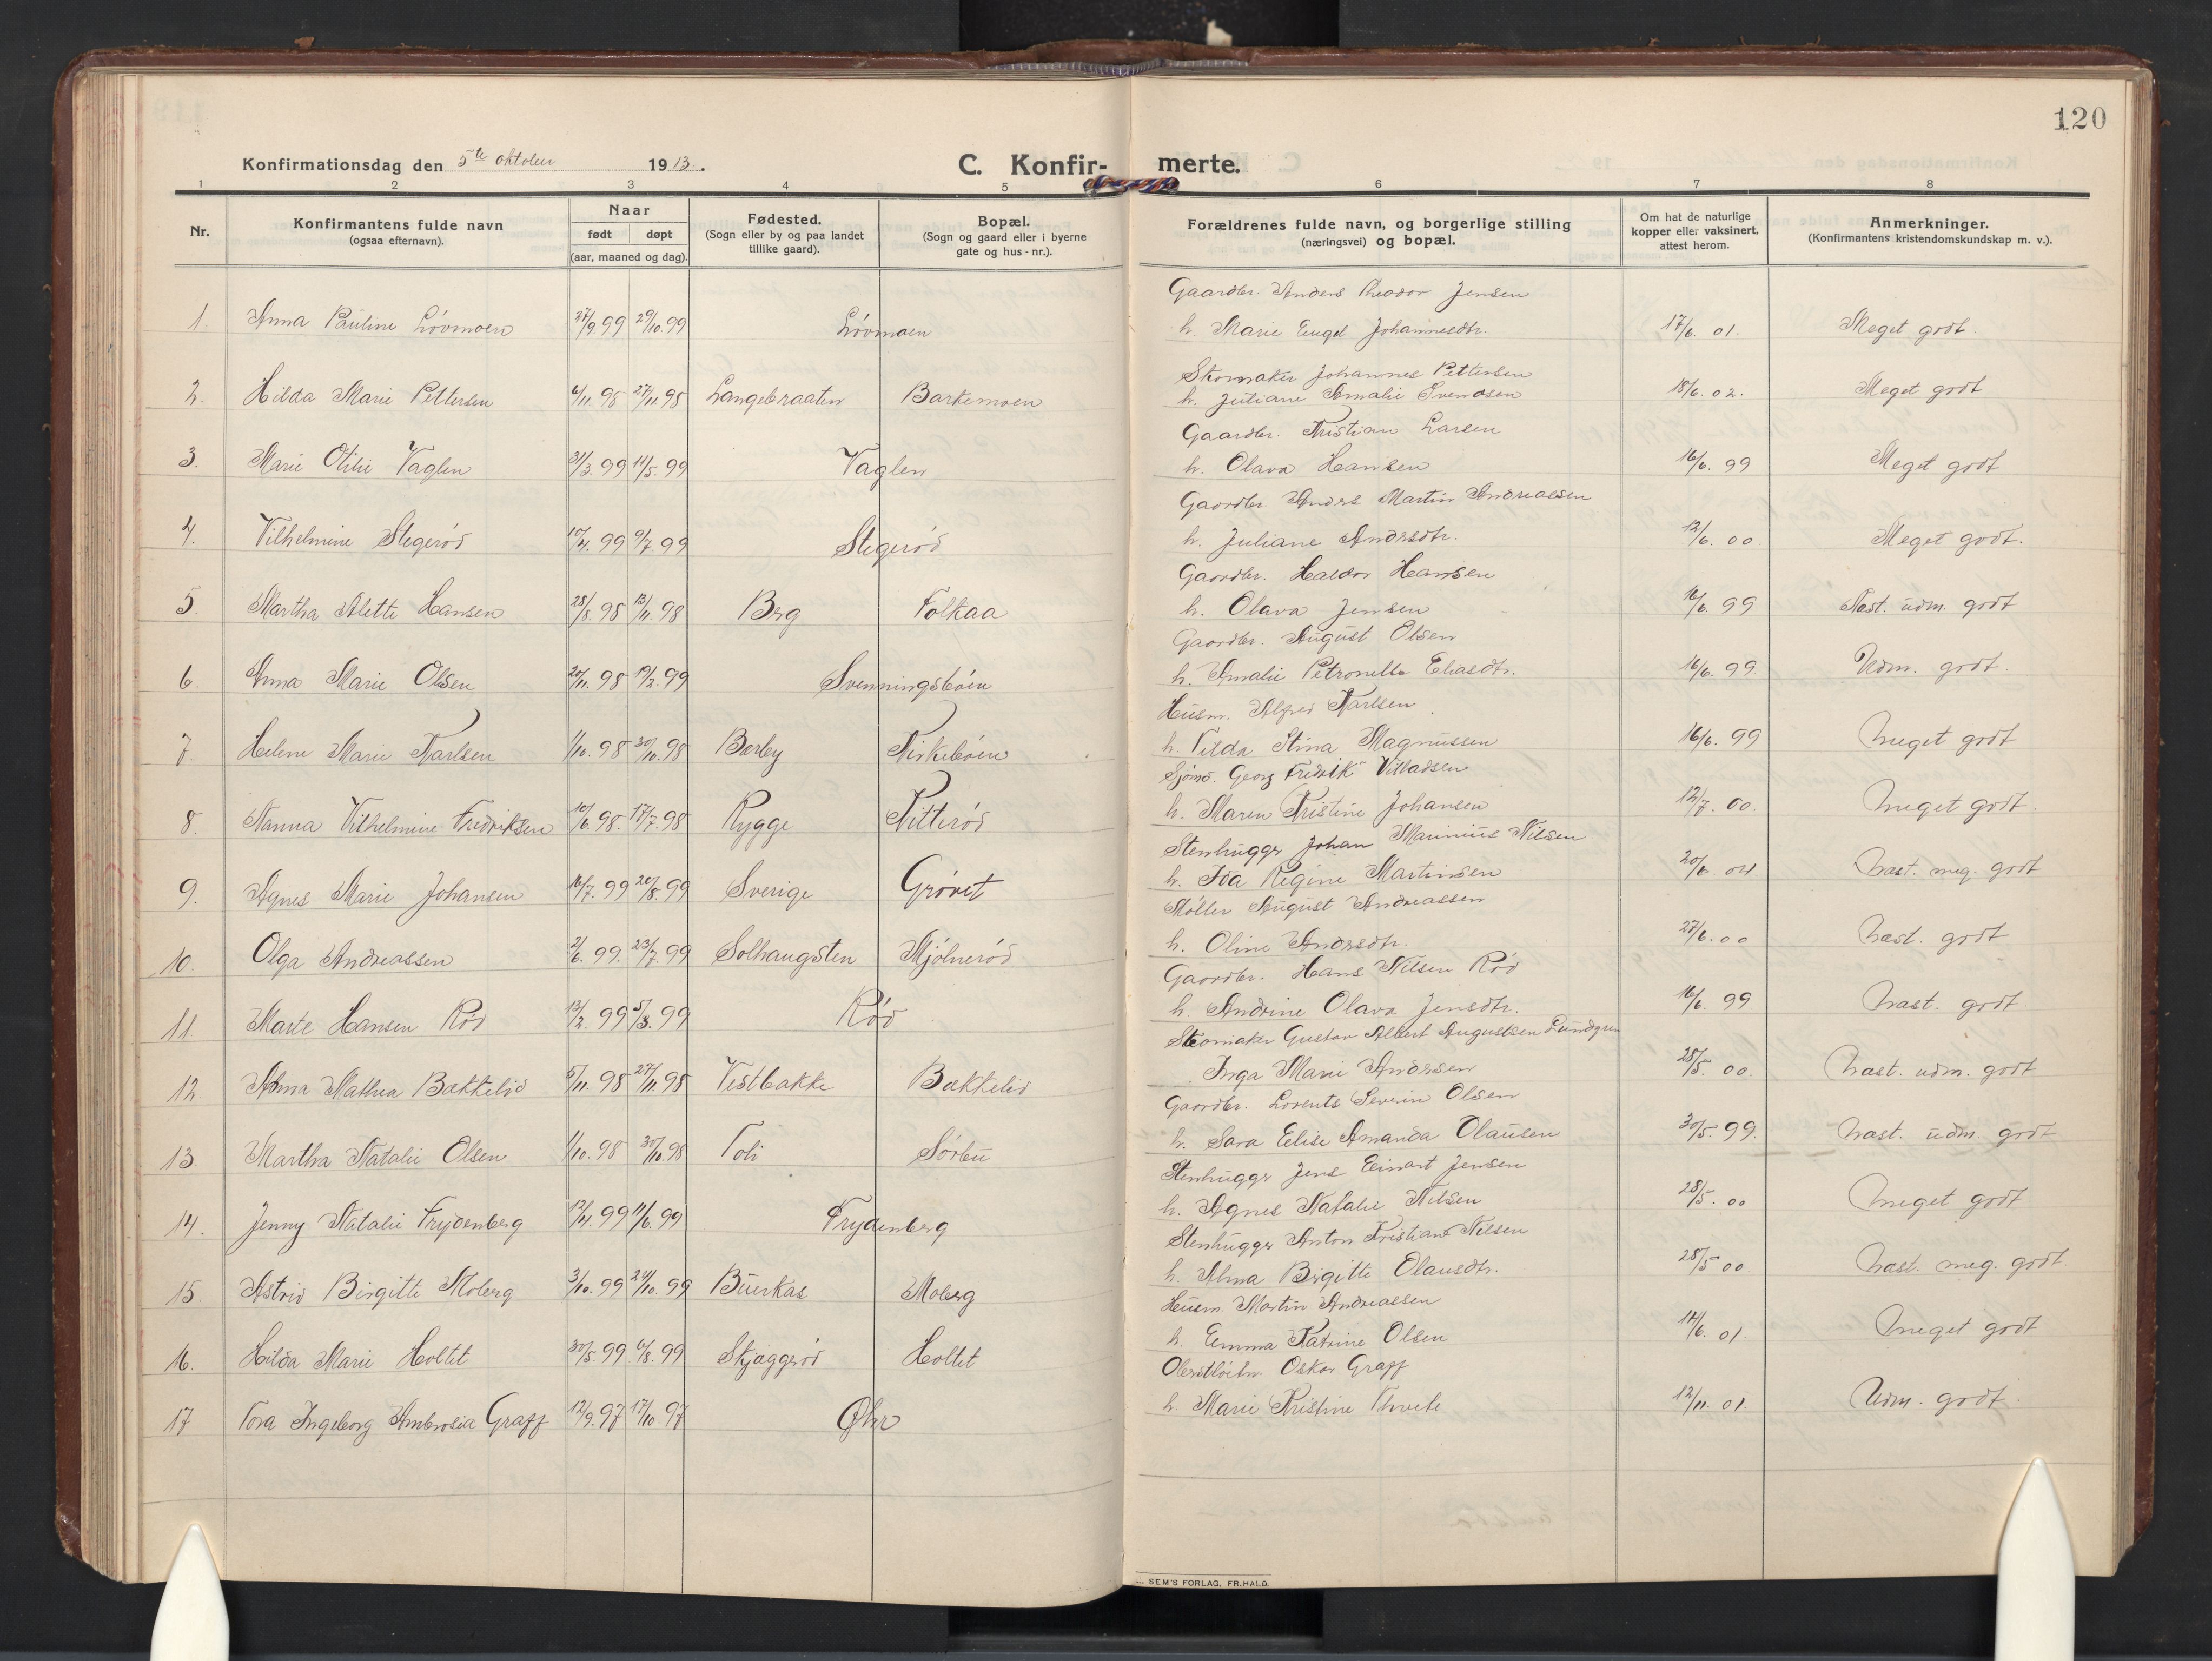 120
Konfirmationsdag den 5te oktober 1913.
C. Konfir- merte.
1 2 3 4 5 6 7 8
Nr.
Konfirmantens fulde navn
(ogsaa efternavn).
Naar
født døpt
(aar, maaned og dag).
Fødested.
(Sogn eller by og paa landet
tillike gaard).
Bopæl.
(Sogn og gaard eller i byerne
gate og hus-nr.).
Forældrenes fulde navn, og borgerlige stilling
(næringsvei) og bopæl.
Om hat de naturlige
kopper eller vaksinert,
attest herom.
Anmerkninger.
(Konfirmantens kristendomskundskap m. v.).
Gaardbr. Anders Theodor Jensen
1 Anna Pauline Løvmoen 27/9.99 29/10.99 Løvmoen h. Marie Engel Johannesdtr. 17/6. 01. Meget godt.
Skomaker Johannes Pettersen
2. Hilda Marie Pettersen 6/11. 98 27/11. 98 Langebraaten Barkemoen h. Juliane Amalie Svendsen 18/6. 02. Meget godt
Gaardbr. Kristian Larsen
3. Marie Otilie Vaglen 31/3. 99 11/5. 99 Vaglen h. Olava Hansen 16/6. 99 Meget godt
Gaardbr. Anders Martin Andreassen
4. Vilhelmine Stegerød 10/4. 99 9/7. 99 Stegerød h. Juliane Andersdtr. 12/6. 00 Meget godt.
Gaardbr. Haldor Hansen
5. Martha Alette Hansen 28/8. 98 13/11. 98 Berg Folkaa h. Olava Jensen 16/6. 99 Næst. udm. godt
Gaardbr. August Olsen
6. Anna Marie Olsen 20/11. 98 19/2. 99 Svenningsbøen h. Amalie Petronelle Eliasdtr. 16/6. 99 Udm. godt.
Husm. Alfred Karlsen
7. Helene Marie Karlsen 1/10. 98 30/10. 98 Bærby Kirkebøen h. Tilda Stina Magnussen 16/6. 99 Meget godt
Sjømd. Georg Fredrik Villadsen
8. Nanna Vilhelmine Fredriksen 10/6. 98. 17/7. 98 Rygge Kitterød h. Maren Kristine Johansen 12/7. 00. Meget godt.
Stenhugger Johan Marinius Nilsen
9. Agnes Marie Johansen 16/7. 99 20/8. 99 Sverige Grøvet h. Ida Regine Martinsen 20/6. 04 Næst. meg. godt
Møller August Andreassen
10. Olga Andreassen 2/6. 99. 23/7. 99 Solhaugsten Mjølnerød h. Oline Andersdtr. 27/6. 00 Næst. godt
Gaardbr. Hans Nilsen Rød
11. Marte Hansen Rød 13/2. 99 5/3. 99 Rød h. Andrine Olava Jensdtr. 16/6. 99 Næst. godt
Skomaker Gustav Albert Augustsen Lundgren
12 Anna Mathea Bækkelid 5/11. 98 27/11. 98 Vestbakke Bækkelid Inga Marie Andersen 28/5. 00. Næst. udm. godt
Gaardbr. Lorents Severin Olsen
13. Martha Natalie Olsen 1/10. 98 30/10. 98 Torp Sørbu h. Sara Elise Amanda Olausen 30/5. 99. Næst. udm. godt
Stenhugger Jens Einart Jensen
14. Jenny Natalie Frydenberg 12/4. 99 11/6. 99 Frydenberg h. Agnes Natalie Nilsen 28/5. 00 Meget godt
Stenhugger Anton Kristian Nilsen
15. Astrid Birgitte Moberg 3/10. 99 24/10. 99 Buerkas Moberg h. Alma Birgitte Olausdtr. 28/5 00 Næst. meg. godt.
Husm. Martin Andreassen
16. Hilda Marie Holtet 30/5. 99 6/8. 99 Skjæggerød Holtet h. Emma Katrine Olsen 14/6. 01. Meget godt
Oberstløitn. Oskar Graff
17 Tora Ingeborg Ambrosia Graff 12/9. 97 17/10. 97 Øbr h. Marie Kristine Thvete 12/11. 01. Udm. godt
SEM'S FORLAG, FR.HALD.